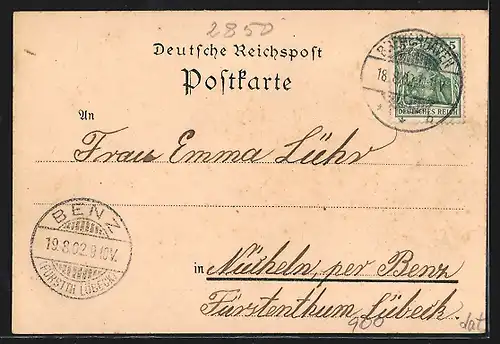 2850
Deutsche Reichspost
Postkarte
5
BREMERHAVEN
18.
DEUTSCHES REICH
An
Frau Emma Lühr
BENZ
19.8.02.9-10V.
(FÜRSTTH. LÜBECK)
in Nücheln, per Benz
Fürstenthum Lübeck.
900
dat